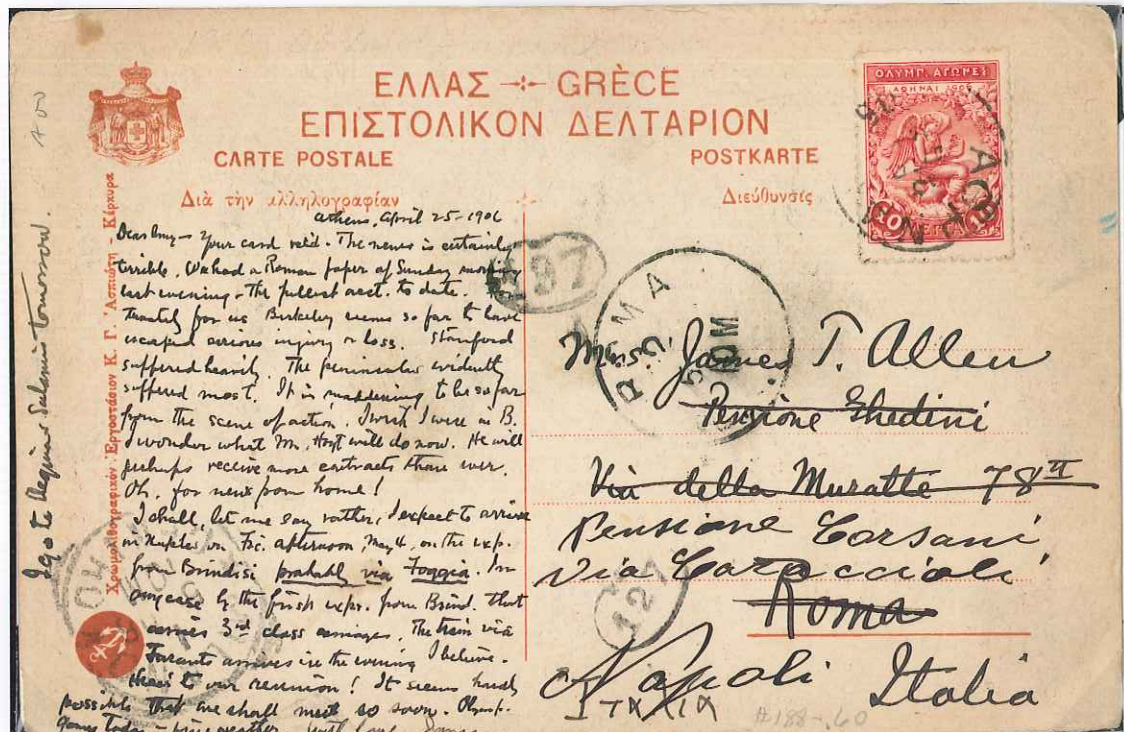 ΕΛΛΑΣ GRÈCE
ΕΠΙΣΤΟΛΙΚΟΝ ΔΕΛΤΑΡΙΟΝ
CARTE POSTALE POSTKARTE
Διὰ τὴν ἀλληλογραφίαν Διεύθυνσις
ΟΛΥΜΠ. ΑΓΩΝΕΣ
ΑΘΗΝΑΙ 1906
10 ΛΕΠΤΑ 10
Athens, April 25-1906
Dear Amy - Your card rec'd. The news is certainly
terrible. We had a Roman paper of Sunday morning
last evening - the fullest acct. to date.
for us Berkeley seems so far to have
escaped serious injury or loss. Stanford
suffered heavily. The peninsula evidently
suffered most. It is maddening to be so far
from the scene of action. I wish I were in B.
I wonder what Mr. Hoyt will do now. He will
perhaps receive more contracts than ever.
Oh, for news from home!
I shall, let me say rather, I expect to arrive
in Naples on Fri. afternoon, May 4, on the exp.
from Brindisi probably via Foggia. In
any case by the first expr. from Brind. that
carries 3rd class carriages. The train via
Taranto arrives in the evening I believe.
Here's to our reunion! It seems hardly
possible that we shall meet so soon. Olymp.
games today - fine weather. With love James
I go to Aegina Salamis tomorrow.
Χρωμολιθογραφικὸν Ἐργοστάσιον Κ. Γ. Ἀσπιώτη - Κέρκυρα
397
ROMA
Mrs. James T. Allen
Pensione Ghedini
Via della Muratte 78 II
Pensione Corsani
Via Caraccioli
Roma
Napoli Italia
127
#188-.60